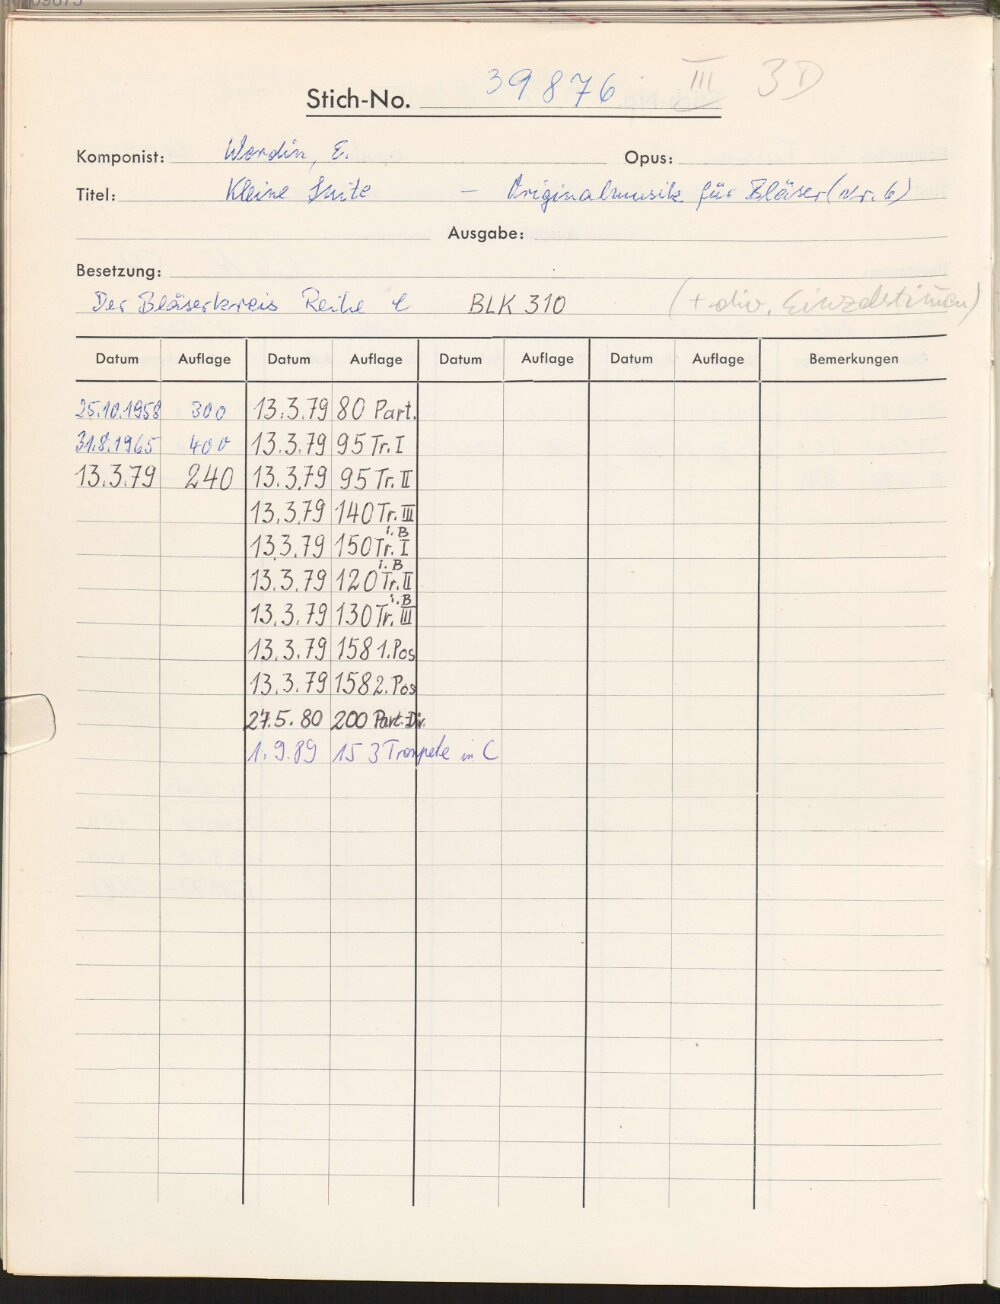 Stich-No. 39876 III 3D
Komponist: Wordin, E. Opus:
Titel: Kleine Suite — Originalmusik für Bläser (Nr. 6)
Ausgabe:
Besetzung:
Der Bläserkreis Reihe BLK 310 (+ div. Einzelstimmen)
Datum Auflage Datum Auflage Datum Auflage Datum Auflage Bemerkungen
25.10.1958 300 13.3.79 80 Part.
31.8.1965 400 13.3.79 95 Tr. I
13.3.79 240 13.3.79 95 Tr. II
13.3.79 140 Tr. III
13.3.79 150 Tr. I i. B
13.3.79 120 Tr. II i. B
13.3.79 130 Tr. III i. B
13.3.79 158 1. Pos
13.3.79 158 2. Pos
27.5.80 200 Part. Dir.
1.9.89 153 Trompete in C